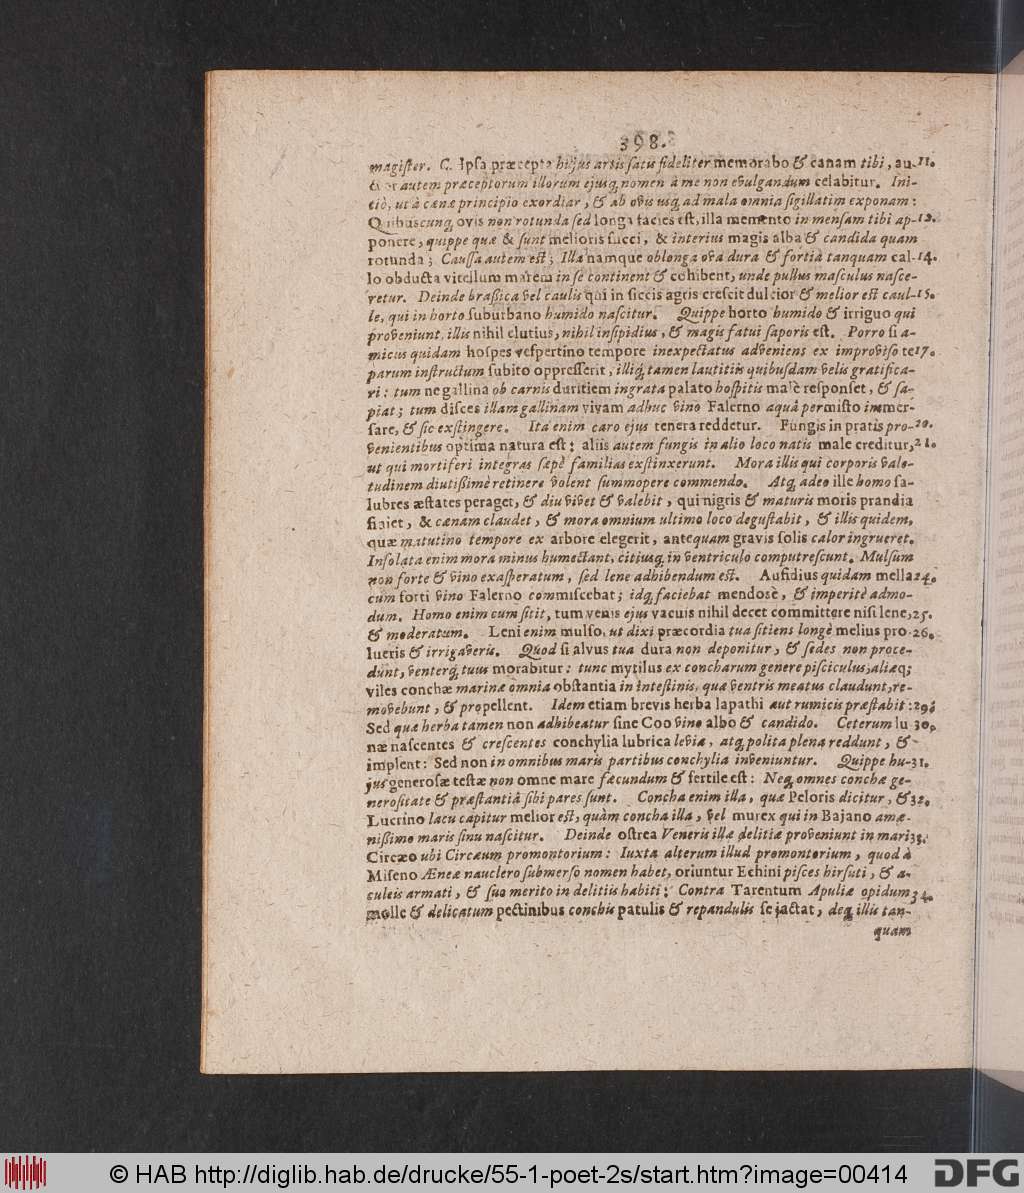 398.
magister. C. Ipsa præcepta hujus artis satis fideliter memorabo & canam tibi, au- 11.
autem præceptorum illorum ejusq́ nomen â me non evulgandum celabitur. Ini-
tiò, ut à cœnæ principio exordiar, & ab ovis usq́ ad mala omnia sigillatim exponam:
Quibuscunq́ ovis non rotunda sed longa facies est, illa memento in mensam tibi ap- 12.
ponere, quippe quæ & sunt melioris succi, & interius magis alba & candida quam
rotunda; Caussa autem est; Illa namque oblonga ova dura & fortiâ tanquam cal- 14.
lo obducta vitellum marem in se continent & cohibent, unde pullus masculus nasce-
retur. Deinde brassica vel caulis qui in siccis agris crescit dulcior & melior est caul- 15.
le, qui in horto suburbano humido nascitur. Quippe horto humido & irriguo qui
proveniunt, illis nihil elutius, nihil insipidius, & magis fatui saporis est. Porro si a-
micus quidam hospes vespertino tempore inexpectatus adveniens ex improviso te 17.
parum instructum subito oppresserit, illiq́ tamen lautitiis quibusdam velis gratifica-
ri: tum ne gallina ob carnis duritiem ingrata palato hospitis malè responset, & sa-
piat; tum disces illam gallinam vivam adhuc vino Falerno aquâ permisto immer-
sare, & sic exstingere. Ita enim caro ejus tenera reddetur. Fungis in pratis pro- 20.
venientibus optima natura est: aliis autem fungis in alio loco natis male creditur, 21.
ut qui mortiferi integras sæpè familias exstinxerunt. Mora illis qui corporis vale-
tudinem diutissimè retinere volent summopere commendo. Atq́ adeo ille homo sa-
lubres æstates peraget, & diu vivet & valebit, qui nigris & maturis moris prandia
finiet, & cœnam claudet, & mora omnium ultimo loco degustabit, & illis quidem,
quæ matutino tempore ex arbore elegerit, antequam gravis solis calor ingrueret.
Insolata enim mora minus humectant, citiusq́ in ventriculo computrescunt. Mulsum
non forte & vino exasperatum, sed lene adhibendum est. Aufidius quidam mella 24.
cum forti vino Falerno commiscebat; idq́ faciebat mendosè, & imperitè admo-
dum. Homo enim cum sitit, tum venis ejus vacuis nihil decet committere nisi lene, 25.
& moderatum. Leni enim mulso, ut dixi præcordia tua sitiens longè melius pro- 26.
lueris & irrigaveris. Quod si alvus tua dura non deponitur, & sedes non proce-
dunt, venterq́ tuus morabitur: tunc mytilus ex concharum genere pisciculus, aliæq;
viles conchæ marinæ omnia obstantia in intestinis, quæ ventris meatus claudunt, re-
movebunt, & propellent. Idem etiam brevis herba lapathi aut rumicis præstabit: 29.
Sed quæ herba tamen non adhibeatur sine Coo vino albo & candido. Ceterum lu 30.
næ nascentes & crescentes conchylia lubrica levia, atq́ polita plena reddunt, &
implent: Sed non in omnibus maris partibus conchylia inveniuntur. Quippe hu- 31.
jus generosæ testæ non omne mare fæcundum & fertile est: Neq́ omnes conchæ ge-
nerositate & præstantiâ sibi pares sunt. Concha enim illa, quæ Peloris dicitur, & 32.
Lucrino lacu capitur melior est, quàm concha illa, vel murex qui in Bajano amæ-
nissimo maris sinu nascitur. Deinde ostrea Veneris illæ delitiæ proveniunt in mari 33.
Circæo ubi Circæum promontorium: Iuxta alterum illud promontorium, quod à
Miseno Æneæ nauclero submerso nomen habet, oriuntur Echini pisces hirsuti, & a-
culeis armati, & suo merito in delitiis habiti: Contra Tarentum Apuliæ opidum 34.
molle & delicatum pectinibus conchis patulis & repandulis se jactat, deq́ illis tan-
quam
© HAB http://diglib.hab.de/drucke/55-1-poet-2s/start.htm?image=00414
DFG